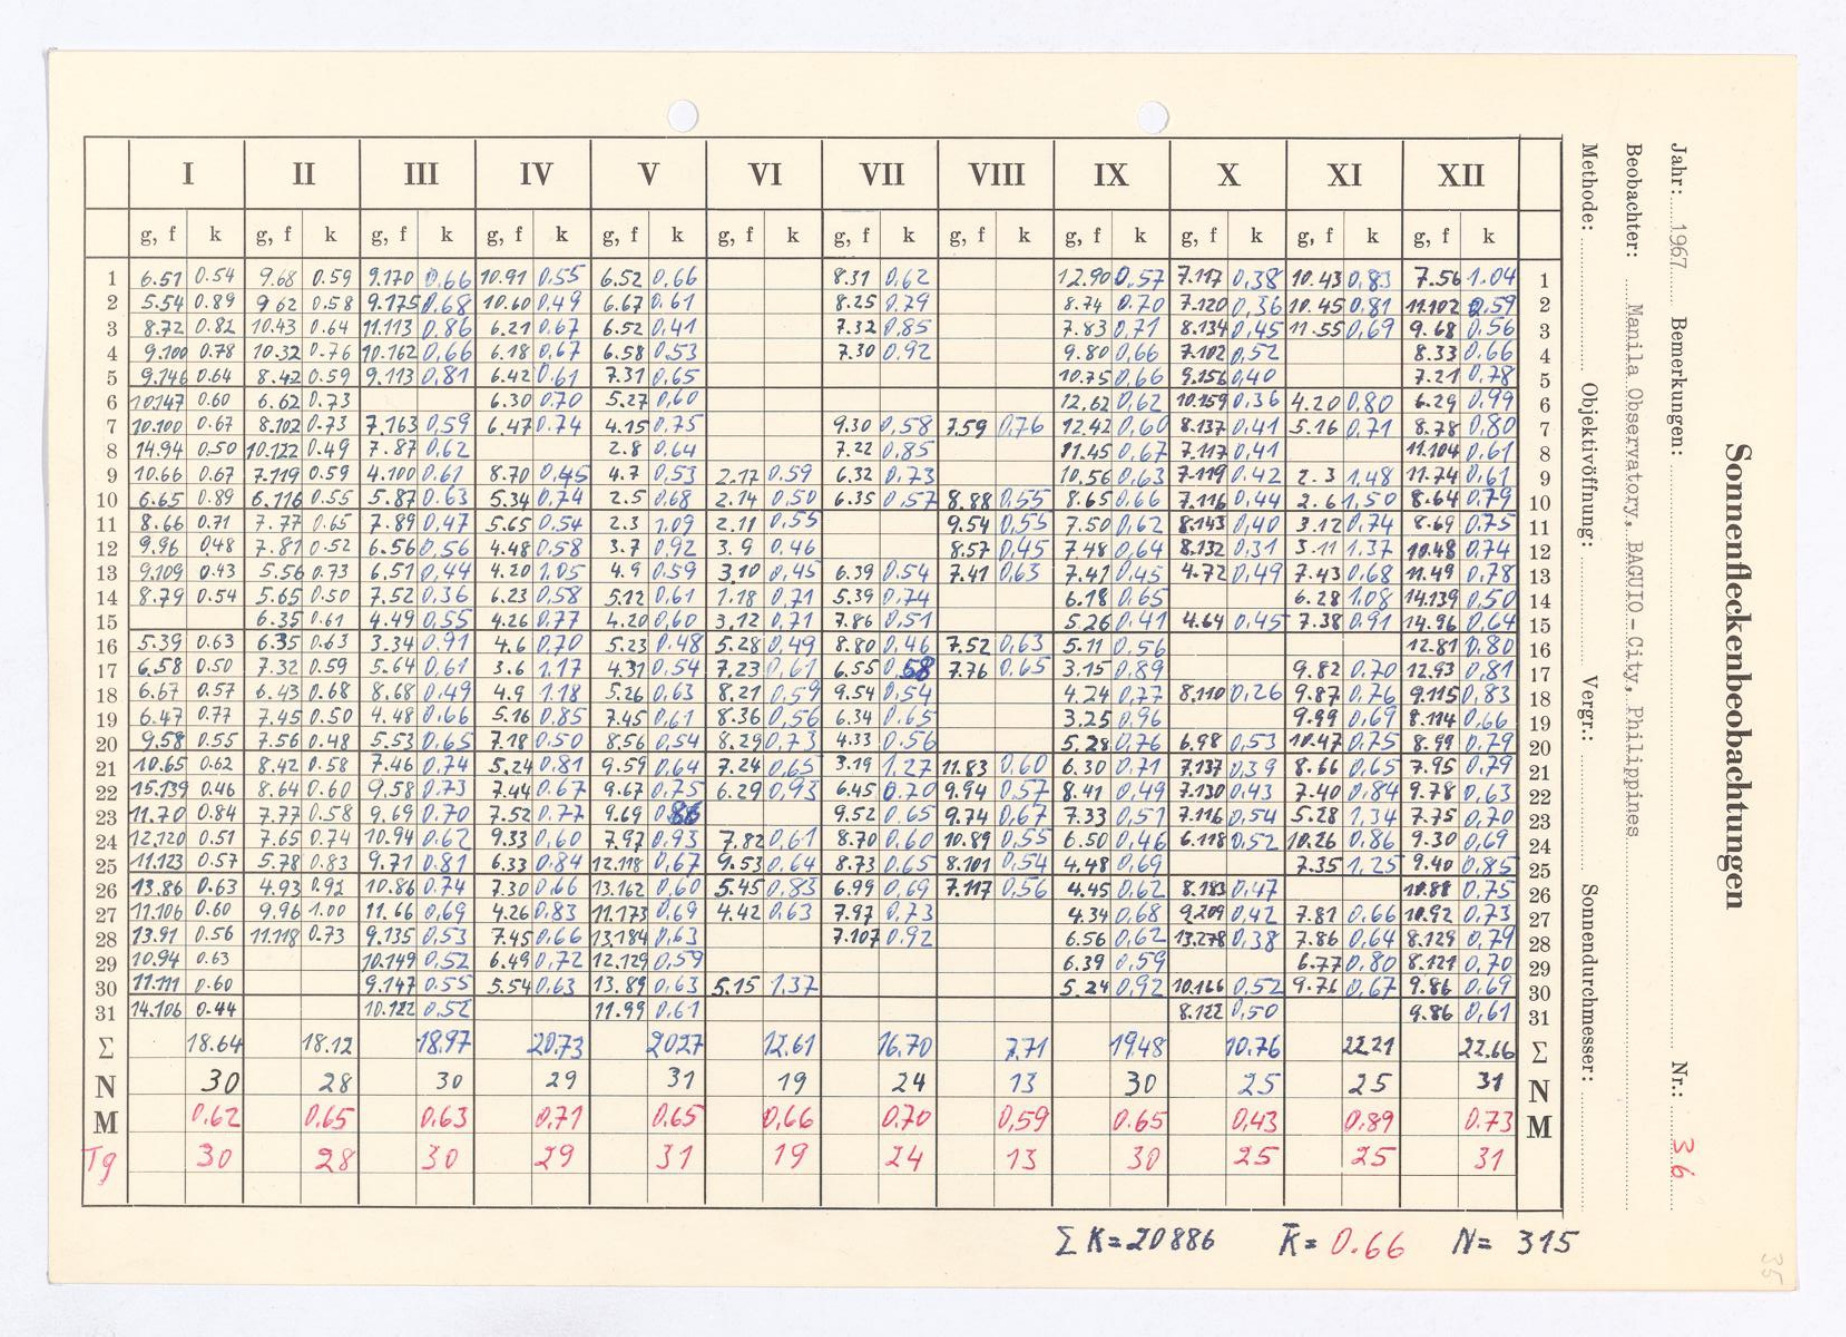 Sonnenfleckenbeobachtungen
Jahr: 1967 Bemerkungen: Nr.: 36
Beobachter: Manila Observatory, BAGUIO-City, Philippines
Methode: Objektivöffnung: Vergr.: Sonnendurchmesser:
I II III IV V VI VII VIII IX X XI XII
g, f k g, f k g, f k g, f k g, f k g, f k g, f k g, f k g, f k g, f k g, f k g, f k
1 6.51 0.54 9.68 0.59 9.170 0,66 10.91 0,55 6.52 0,66 8.31 0,62 12.90 0,57 7.117 0,38 10.43 0,83 7.56 1.04 1
2 5.54 0.89 9 62 0.58 9.175 0,68 10.60 0,49 6.67 0.61 8.25 0,79 8.74 0.70 7.120 0,36 10.45 0,81 11.102 0.59 2
3 8.72 0.82 10.43 0.64 11.113 0,86 6.21 0,67 6.52 0,41 7.32 0,85 7.83 0,71 8.134 0,45 11.55 0,69 9.68 0.56 3
4 9.100 0.78 10.32 0.76 10.162 0,66 6.18 0,67 6.58 0,53 7.30 0,92 9.80 0,66 7.102 0,52 8.33 0.66 4
5 9.146 0.64 8.42 0.59 9.113 0,81 6.42 0.61 7.31 0,65 10.75 0,66 9.156 0,40 7.21 0,78 5
6 10.147 0.60 6.62 0.73 6.30 0,70 5.27 0,60 12.62 0,62 10.159 0,36 4.20 0,80 6.29 0,99 6
7 10.100 0.67 8.102 0.73 7.163 0,59 6.47 0.74 4.15 0,75 9.30 0,58 7.59 0,76 12.42 0,60 8.137 0,41 5.16 0,71 8.78 0,80 7
8 14.94 0.50 10.122 0.49 7.87 0,62 2.8 0,64 7.22 0,85 11.45 0,67 7.117 0,41 11.104 0,61 8
9 10.66 0.67 7.119 0.59 4.100 0,61 8.70 0,45 4.7 0,53 2.17 0.59 6.32 0,73 10.56 0,63 7.119 0.42 2.3 1,48 11.74 0,61 9
10 6.65 0.89 6.116 0.55 5.87 0.63 5.34 0,74 2.5 0,68 2.14 0,50 6.35 0,57 8.88 0,55 8.65 0,66 7.116 0,44 2.6 1,50 8.64 0,79 10
11 8.66 0.71 7.77 0.65 7.89 0,47 5.65 0,54 2.3 1,09 2.11 0,55 9.54 0,55 7.50 0,62 8.143 0,40 3.12 0,74 8.69 0,75 11
12 9.96 0.48 7.81 0.52 6.56 0,56 4.48 0,58 3.7 0,92 3.9 0.46 8.57 0,45 7.48 0,64 8.132 0,31 3.11 1,37 10.48 0,74 12
13 9.109 0.43 5.56 0.73 6.51 0,44 4.20 1,05 4.9 0,59 3.10 0,45 6.39 0,54 7.41 0,63 7.41 0,45 4.72 0,49 7.43 0,68 11.49 0,78 13
14 8.79 0.54 5.65 0.50 7.52 0,36 6.23 0,58 5.12 0,61 1.18 0,71 5.39 0,74 6.18 0,65 6.28 1,08 14.139 0,50 14
15 6.35 0.61 4.49 0,55 4.26 0,77 4.20 0,60 3.12 0,71 7.86 0,51 5.26 0.41 4.64 0,45 7.38 0,91 14.96 0,64 15
16 5.39 0.63 6.35 0.63 3.34 0.91 4.6 0,70 5.23 0.48 5.28 0,49 8.80 0,46 7.52 0,63 5.11 0,56 12.81 0.80 16
17 6.58 0.50 7.32 0.59 5.64 0,61 3.6 1.17 4.31 0,54 7.23 0,61 6.55 0,58 7.76 0,65 3.15 0,89 9.82 0,70 12.93 0,81 17
18 6.67 0.57 6.43 0.68 8.68 0,49 4.9 1.18 5.26 0,63 8.21 0,59 9.54 0,54 4.24 0,77 8.110 0,26 9.87 0,76 9.115 0,83 18
19 6.47 0.77 7.45 0.50 4.48 0,66 5.16 0,85 7.45 0,61 8.36 0,56 6.34 0.65 3.25 0,96 9.99 0,69 8.114 0,66 19
20 9.58 0.55 7.56 0.48 5.53 0,65 7.18 0,50 8.56 0,54 8.29 0,73 4.33 0,56 5.28 0,76 6.98 0,53 10.47 0,75 8.99 0,79 20
21 10.65 0.62 8.42 0.58 7.46 0,74 5.24 0,81 9.59 0,64 7.24 0,65 3.19 1,27 11.83 0,60 6.30 0,71 7.137 0,39 8.66 0,65 7.95 0,79 21
22 15.139 0.46 8.64 0.60 9.58 0.73 7.44 0.67 9.67 0,75 6.29 0,93 6.45 0.70 9.94 0,57 8.41 0,49 7.130 0,43 7.40 0,84 9.78 0,63 22
23 11.70 0.84 7.77 0.58 9.69 0,70 7.52 0.77 9.69 0,86 9.52 0.65 9.74 0,67 7.33 0,51 7.116 0,54 5.28 1,34 7.75 0,70 23
24 12.120 0.51 7.65 0.74 10.94 0,62 9.33 0,60 7.97 0,93 7.82 0,61 8.70 0,60 10.89 0,55 6.50 0,46 6.118 0,52 10.26 0,86 9.30 0,69 24
25 11.123 0.57 5.78 0.83 9.71 0,81 6.33 0,84 12.118 0,67 9.53 0,64 8.73 0,65 8.101 0,54 4.48 0,69 7.35 1,25 9.40 0,85 25
26 13.86 0.63 4.93 0.92 10.86 0,74 7.30 0,66 13.162 0,60 5.45 0,83 6.99 0,69 7.117 0,56 4.45 0,62 8.183 0,47 10.88 0,75 26
27 11.106 0.60 9.96 1.00 11.66 0,69 4.26 0,83 11.173 0,69 4.42 0,63 7.97 0,73 4.34 0,68 9.209 0,42 7.81 0,66 10.92 0,73 27
28 13.91 0.56 11.118 0.73 9.135 0,53 7.45 0,66 13.184 0,63 7.107 0.92 6.56 0,62 13.278 0,38 7.86 0,64 8.129 0,79 28
29 10.94 0.63 10.149 0,52 6.49 0,72 12.129 0,59 6.39 0,59 6.77 0,80 8.121 0,70 29
30 11.111 0.60 9.147 0.55 5.54 0,63 13.89 0,63 5.15 1,37 5.24 0,92 10.166 0,52 9.76 0,67 9.86 0,69 30
31 14.106 0.44 10.122 0,52 11.99 0,61 8.122 0,50 9.86 0,61 31
Σ 18.64 18.12 18,97 20,73 2027 12,61 16,70 7,71 19,48 10,76 22,21 22,66 Σ
N 30 28 30 29 31 19 24 13 30 25 25 31 N
M 0.62 0,65 0,63 0,71 0.65 0,66 0.70 0,59 0.65 0,43 0.89 0.73 M
Tg 30 28 30 29 31 19 24 13 30 25 25 31
Σ K = 20886 K̄ = 0.66 N = 315
35